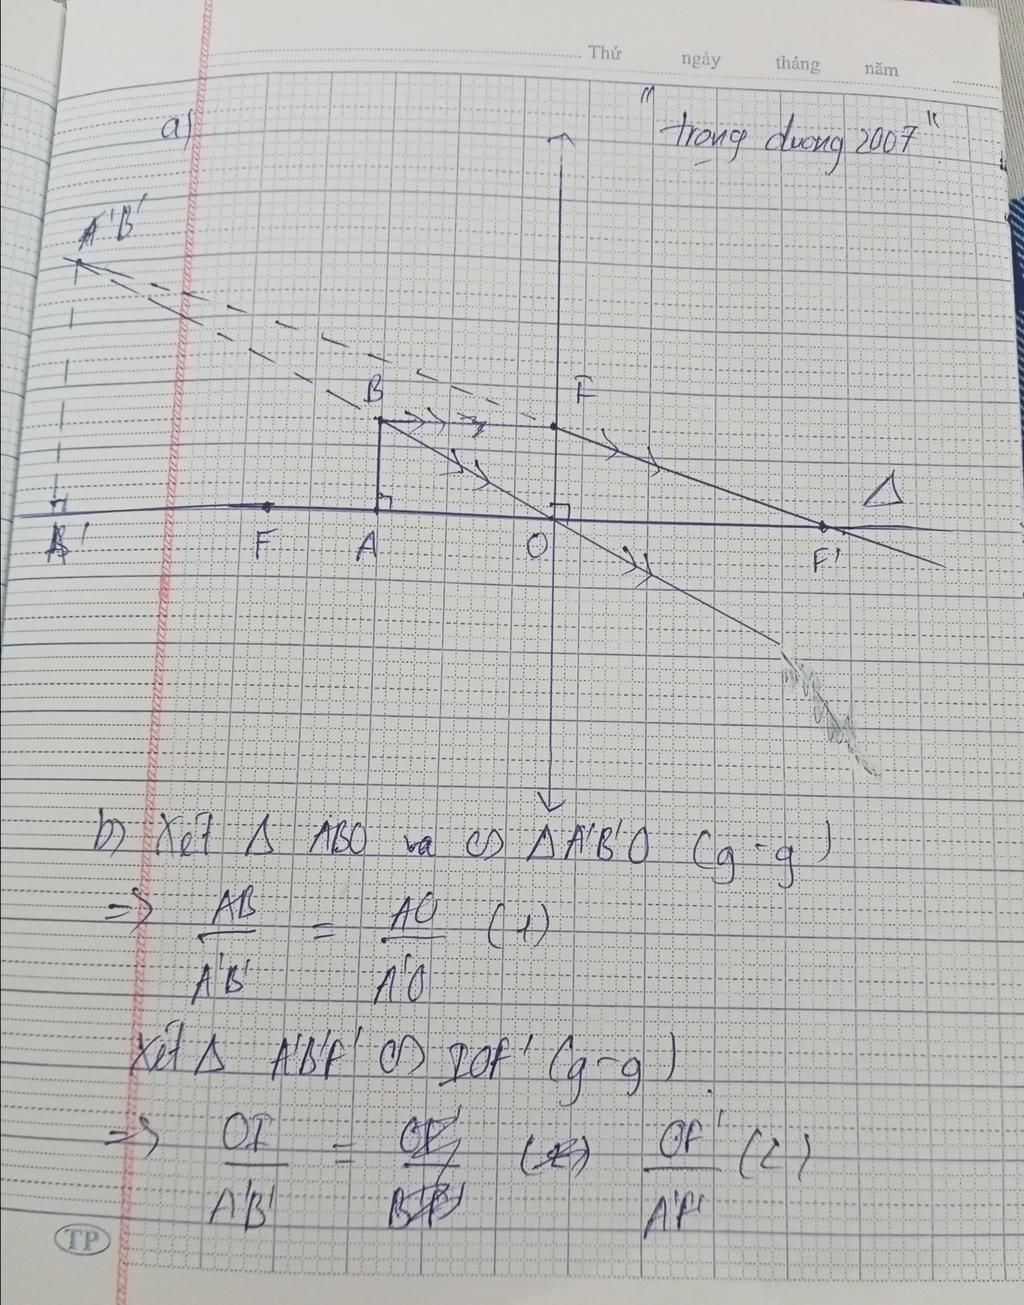 Thứ ngày tháng năm
a)
" trọng duong 2007 "
B'
B
I
Δ
A'
F
A
O
F'
b) Xét Δ ABO va ∽ Δ A'B'O (g-g)
=> AB/A'B' = AO/A'O (1)
Xét Δ A'B'F' ∽ IOF' (g-g)
=> OI/A'B' = OF'/A'F' (2)
TP